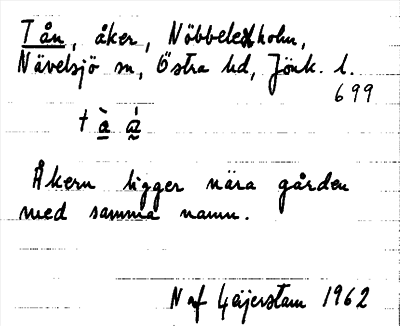 Tån, åker, Nöbbelesholm,
Nävelsjö sn, Östra hd, Jönk. l.
699
Åkern ligger nära gården
med samma namn.
N af Geijerstam 1962